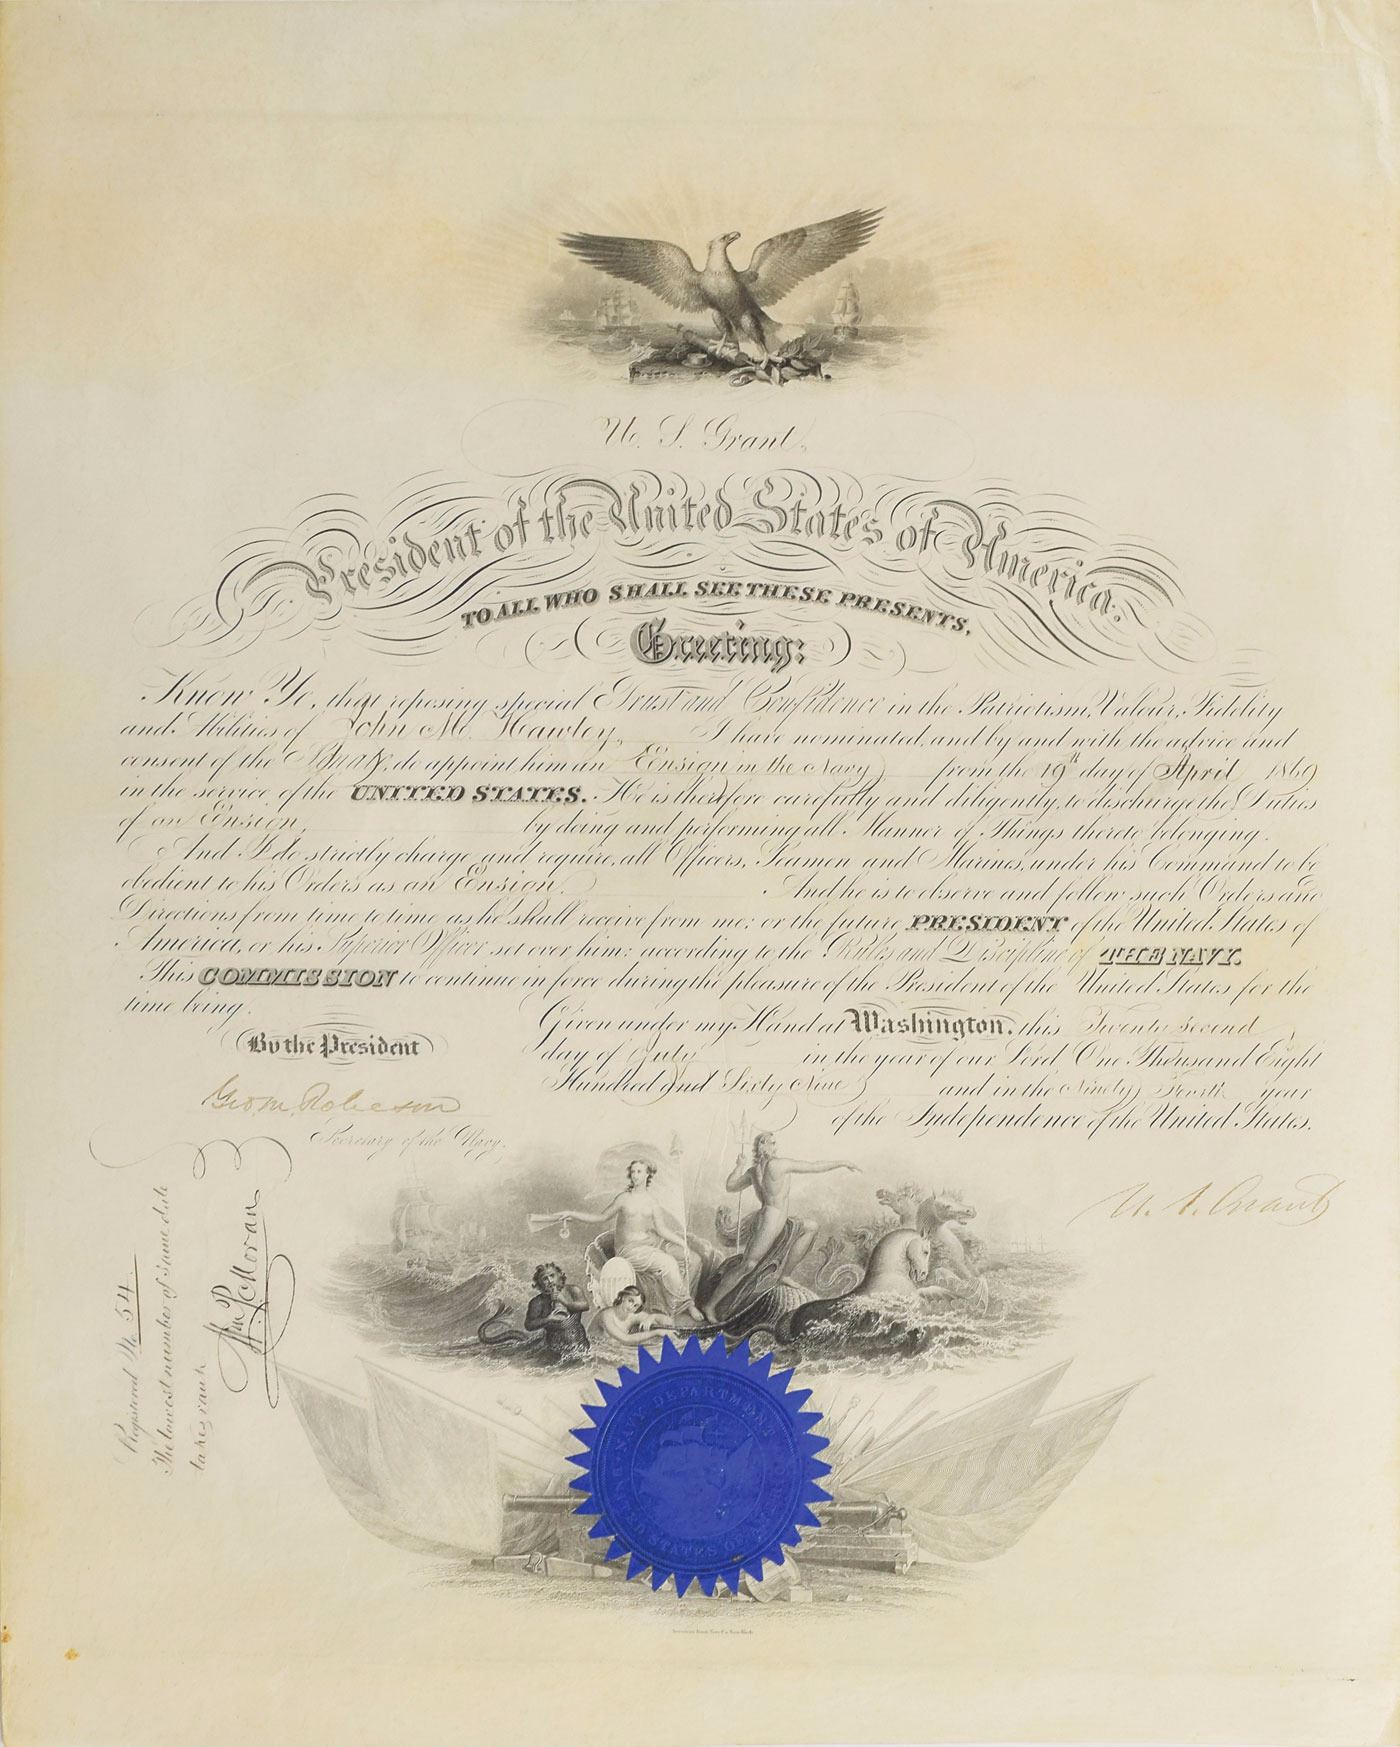 U. S. Grant,
President of the United States of America.
TO ALL WHO SHALL SEE THESE PRESENTS,
Greeting:
Know Ye, that reposing special Trust and Confidence in the Patriotism, Valour, Fidelity
and Abilities of John M. Hawley, I have nominated, and by and with the advice and
consent of the Senate, do appoint him an Ensign in the Navy from the 19th day of April 1869
in the service of the UNITED STATES. He is therefore carefully and diligently, to discharge the Duties
of an Ensign, by doing and performing all Manner of Things thereto belonging.
And I do strictly charge, and require, all Officers, Seamen and Marines, under his Command to be
obedient to his Orders as an Ensign. And he is to observe and follow such Orders and
Directions from time to time as he shall receive from me; or the future PRESIDENT of the United States of
America, or his Superior Officer set over him; according to the Rules and Discipline of THE NAVY.
This COMMISSION to continue in force during the pleasure of the President of the United States for the
time being.
Given under my Hand at Washington, this Twenty second
By the President
day of July in the year of our Lord One Thousand Eight
Hundred and Sixty Nine and in the Ninety Fourth year
of the Independence of the United States.
Geo. M. Robeson
Secretary of the Navy.
U. S. Grant
Registered No 54
The lowest number of same date
takes rank
Wm P. Moran
NAVY DEPARTMENT
UNITED STATES OF AMERICA
American Bank Note Co. New York